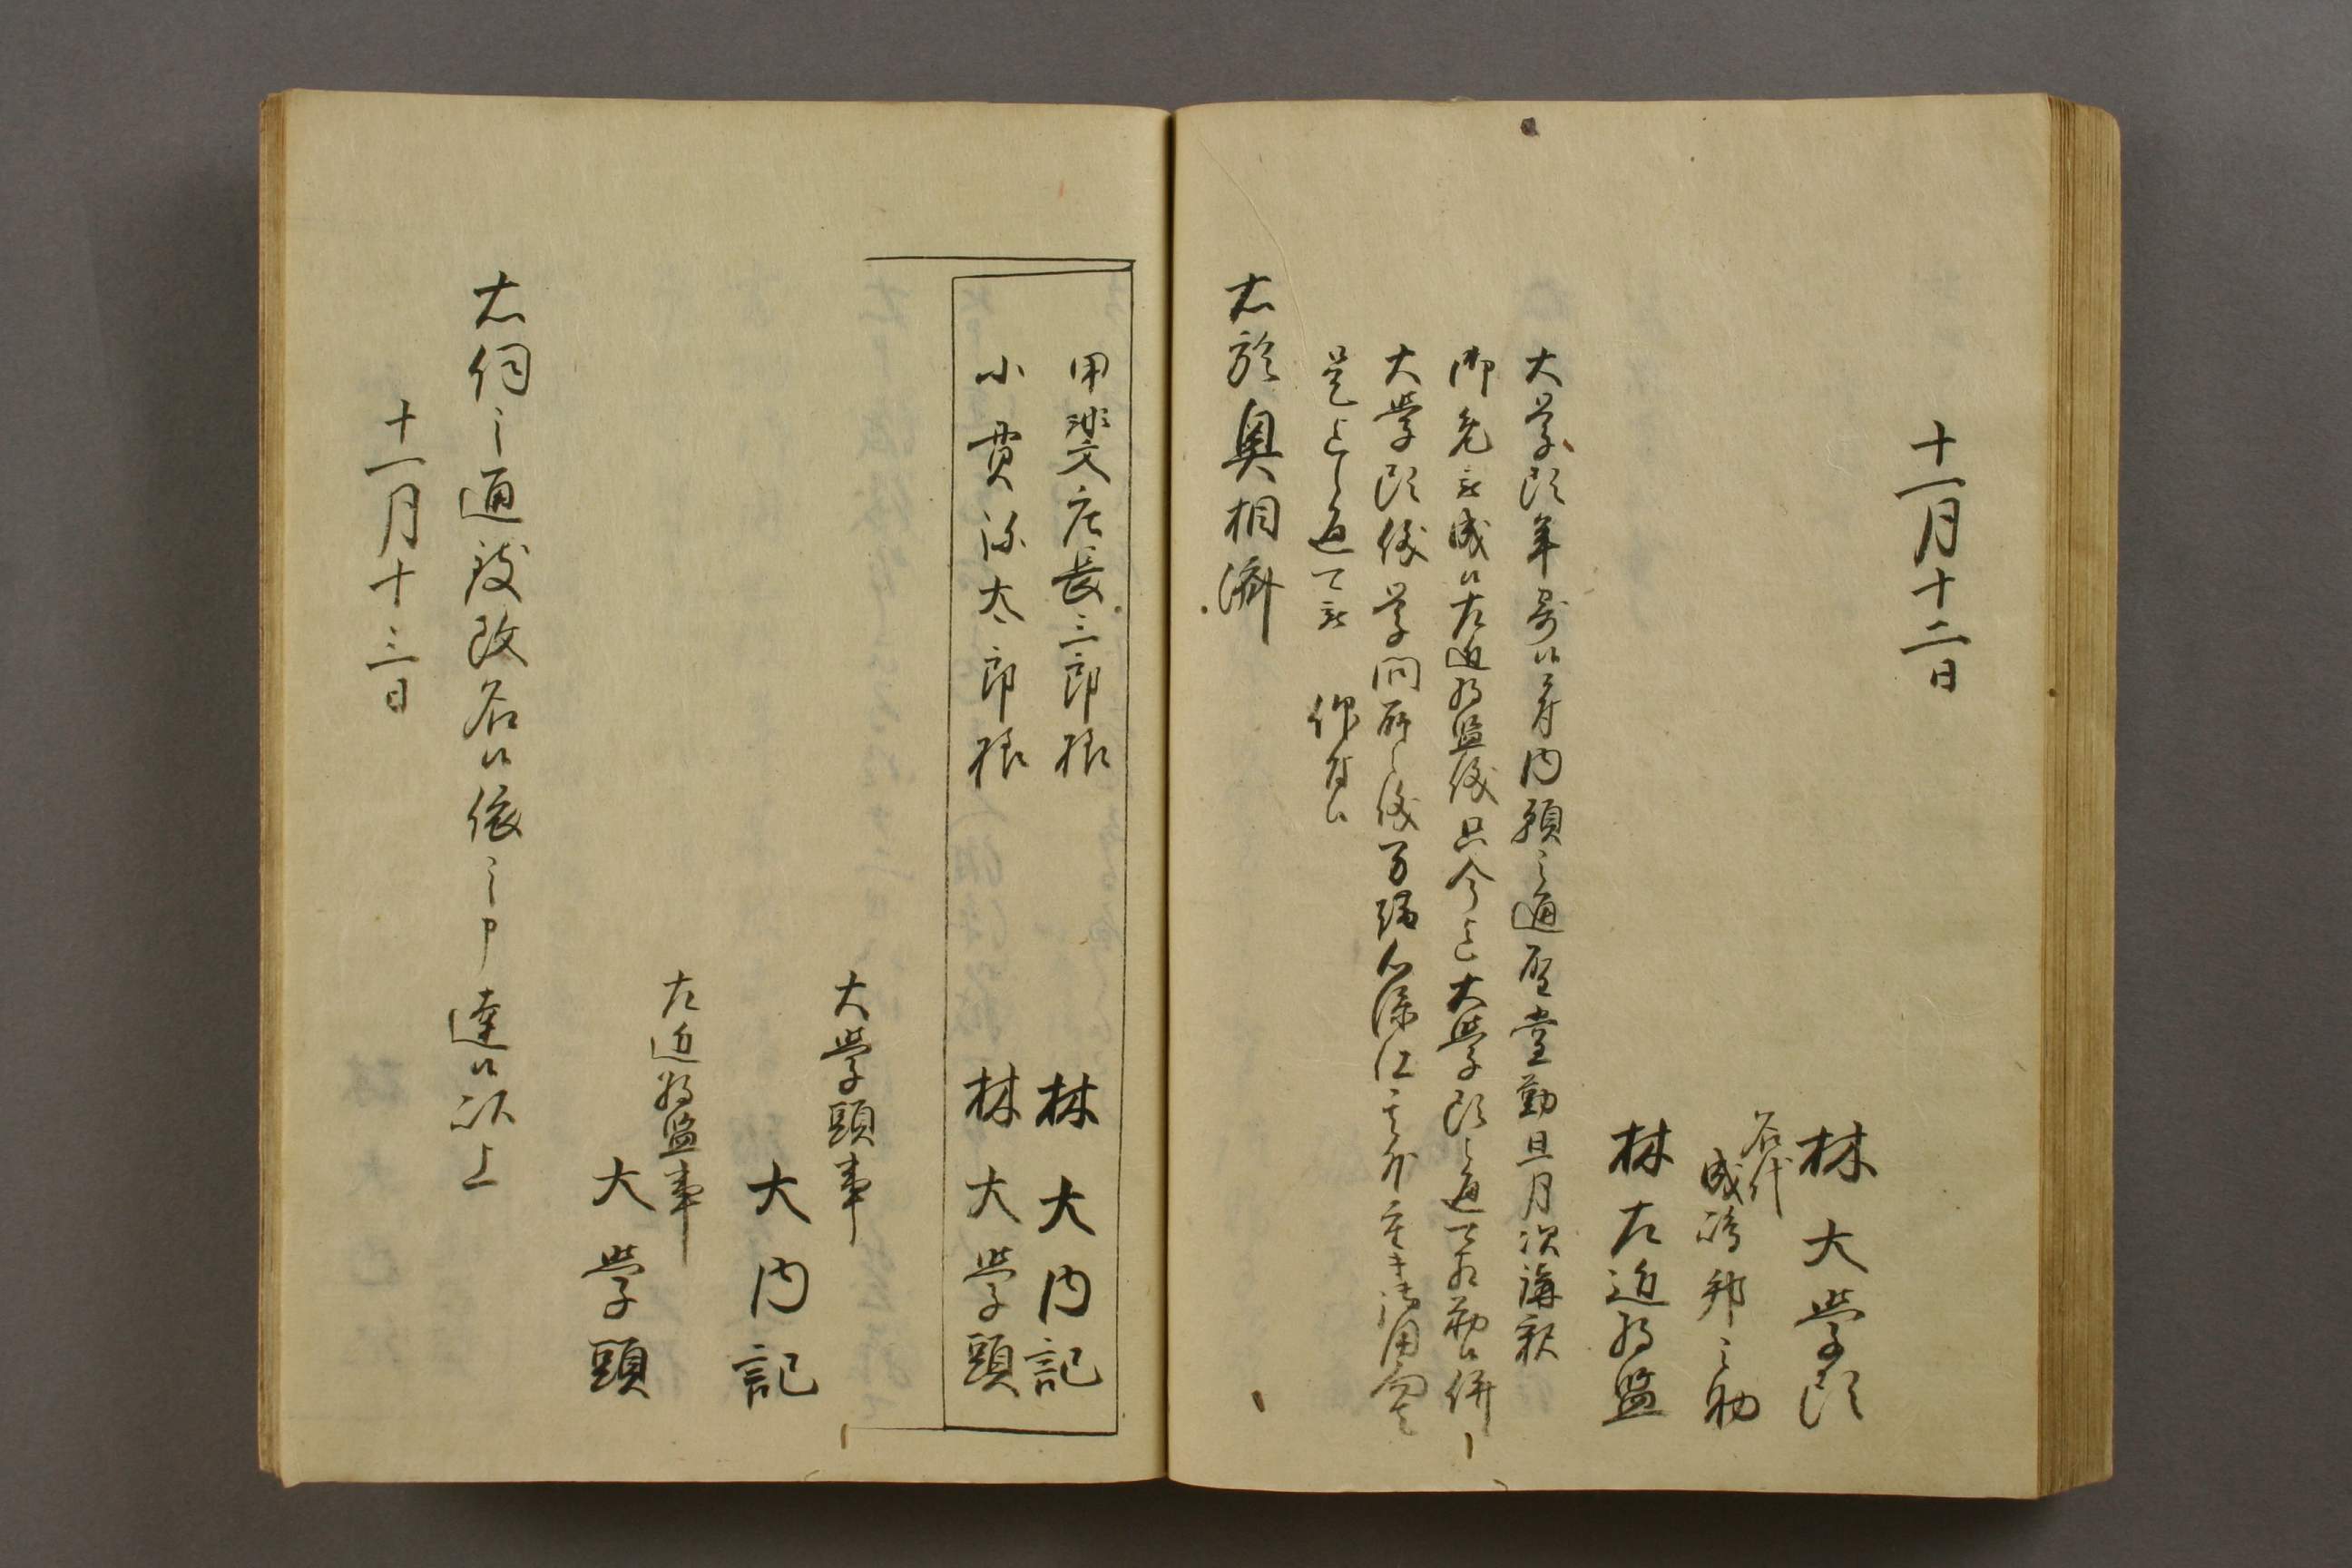 十一月十二日
林大学頭
名代
成嶋邦之助
林左近将監
大学頭年寄候ニ付内願之通聖堂勤且月次講釈
御免被成候左近将監儀只今迄大学頭之通可相勤候併
大学頭儀学問所之儀万端心添仕其外重キ御用向者
是迄之通可被 仰付候
右於奥相済
甲斐庄長三郎様 林大内記
小貫弥太郎様 林大学頭
大学頭事
大内記
左近将監事
大学頭
右伺之通譲改名候依之申達候以上
十一月十三日